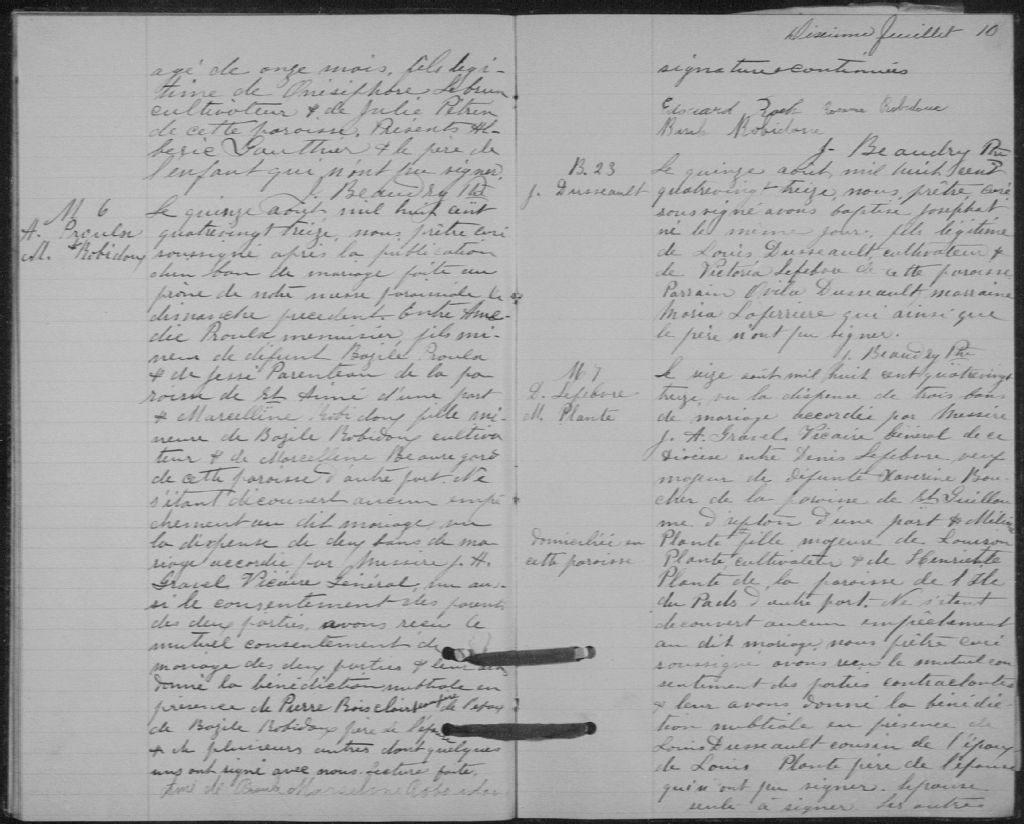 agé de onze mois, fils légi-
time de Onésiphore Lebrun
cultivateur & de Julie Pétrin
de cette paroisse. Présents Al-
béric Gauthier & le père de
l'enfant qui n'ont pu signer.
J. Beaudry Ptre
M 6
A. Proulx
&
M. Robidoux
Le quinze août, mil huit cent
quatrevingt treize, nous, prêtre curé
soussigné après la publication
d'un ban de mariage faite au
prône de notre messe paroissiale le
dimanche précédent. Entre Amé-
dé Proulx menuisier, fils mi-
neur de défunt Bazile Proulx
& de Jessé Parenteau de la pa-
roisse de St Aimé d'une part
& Marcelline Robidoux fille mi-
neure de Bazile Robidoux cultiva
teur & de Marcelline Beauregard
de cette paroisse d'autre part. Ne
s'étant découvert aucun empê-
chement au dit mariage, vu
la dispense de deux bans de ma-
riage accordée par Messire J. A.
Gravel Vicaire Général, vu au-
si le consentement des parents
des deux parties, avons recu le
mutuel consentement de
mariage des deux parties & leur
donné la bénédiction nubtiale en
présence de Pierre Boisclair de l'époux
de Bazile Robidoux père de l'épouse
& de plusieurs autres dont quelques
uns ont signé avec nous. Lecture faite.
Marceline Robidoux
Dixième feuillet 10
signatures continuées
Edward Robidoux
Robidoux
J. Beaudry Ptre
B. 23
J. Dusseault
Le quinze août, mil huit cent
quatrevingt treize, nous, prêtre curé
soussigné avons baptisé Josephat
né le même jour, fils légitime
de Louis Dusseault, cultivateur &
de Victoria Lefebvre de cette paroisse
Parrain Ovila Dusseault, marraine
Maria Laferriere qui ainsi que
le père n'ont pu signer.
J. Beaudry Ptre
M 7
D. Lefebvre
M. Plante
Le seize août mil huit cent quatrevingt
treize, vu la dispense de trois bans
de mariage accordée par Messire
J. A. Gravel, Vicaire Général de ce
Diocèse entre Denis Lefebvre, veuf
majeur de défunte Xaverine Bou-
cher de la paroisse de St Guillau
me d'Upton d'une part & Mélina
domiciliée en
cette paroisse
Plante fille majeure de Louison
Plante, cultivateur & de Henriette
Plante de la paroisse de l'Ile
du Pads d'autre part. Ne s'étant
découvert aucun empêchement
au dit mariage, nous prêtre curé
soussigné avons recu le mutuel con
sentiment des parties contractantes
& leur avons donné la bénédic-
tion nubtiale en présence de
Louis Dusseault cousin de l'époux
de Louis Plante père de l'épouse
qui n'ont pu signer. L'épouse
seule à signer. Les autres